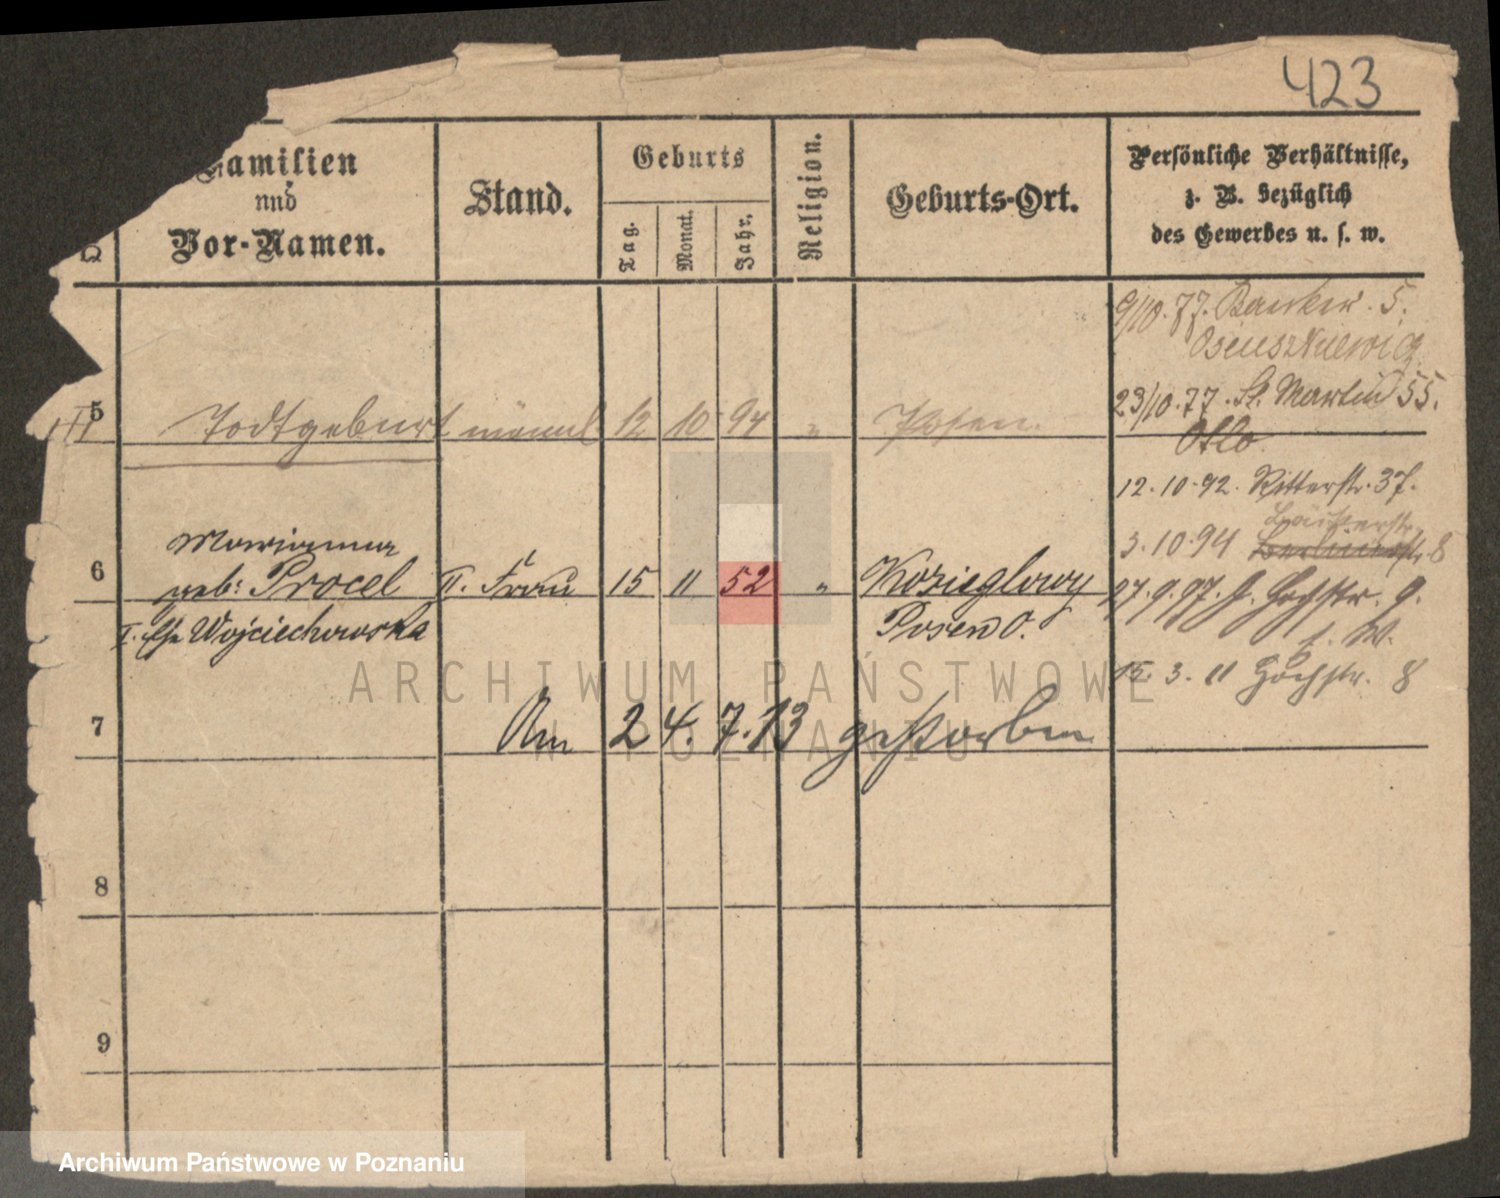 423
Familien
und
Vor-Namen.
Stand.
Geburts
Tag.
Monat.
Jahr.
Religion.
Geburts-Ort.
Persönliche Verhältnisse,
z. B. bezüglich
des Gewerbes u. s. w.
9/10.77. 5.
23/10.77. St. Martin 55.
Otto
5
III Todtgeburt männl 12 10 94 " Posen.
12.10.92. Ritterstr. 37.
3.10.94 Berlinerstr. 8
6
Marianna
geb: Procel II. Frau 15 11 52 " Kozieglowy
Posen O.
I. Ehe Wojciechowska
27.9.97. Hochstr. 9.
15. 3. 11 Hochstr. 8
7
Am 24.7.13 gestorben
8
9
ARCHIWUM PAŃSTWOWE
W POZNANIU
Archiwum Państwowe w Poznaniu